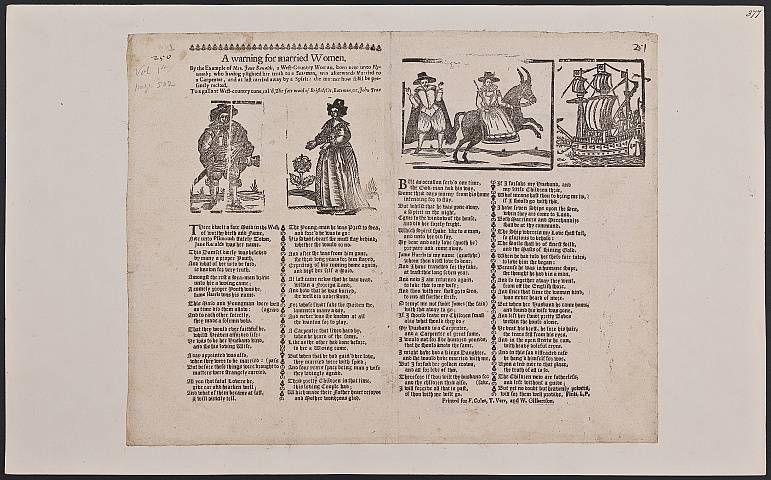 377
250
251
Vol 1
page 502
A warning for married Women,
By the Example of Mrs. Jane Renalds, a West-Country Woman, born neer unto Ply-
mouth; who having plighted her troth to a Seaman, was afterwards Married to
a Carpenter, and at last carried away by a Spirit: the manner how shall be pre-
sently recited.
To a gallant West-country tune, call'd, The fair maid of Bristol; Or, Bateman, or, John True
There dwelt a fair Maid in the West,
of worthy birth and Fame,
Neer unto Plimouth stately Town,
Jane Renalds was her name.
This Damsel dearly was beloved
by many a proper Youth,
And what of her is to be said,
is known for very truth.
Amongst the rest a Sea-man brave
unto her a wooing came,
A comely proper Youth was he,
James Harris was his name.
This Maid and Youngman were well
a time for them allow: (agreed
And to each other secretly,
they made a solemn vow.
That they would ever faithful be,
whilst Heaven afforded life:
He was to be her Husband kind,
and she his loving Wife.
A day appointed was also,
when they were to be married: (pass
But before these things were brought to
matters were strangely carried.
All you that faithful Lovers be,
give ear and hearken well,
And what of them became at last,
I will directly tell.
The Young-man he was Prest to Sea,
and forc'd he was to go:
His Sweet-heart she must stay behind,
whether she would or no.
And after she was from him gone,
she three long years for him stayed,
Expecting of his coming home again,
and kept her self a Maid.
At last came news that he was dead,
within a Forraign Land,
And how that he was buried,
she well did understand,
For whose sweet sake the Maiden she,
lamented many a day,
And never was she known at all
the wanton for to play.
A Carpenter that lived hard by,
when he heard of the same,
Like as the other had done before,
to her a Wooing came.
But when that he had gain'd her love,
they married were with speed;
And four years space being man & wife
they lovingly agreed.
Three pretty Children in that time,
this loving Couple had;
Which made their Father heart rejoyce
and Mother wondrous glad.
But as occasion serv'd one time,
the Good-man took his way,
Some three days journy from his home
intending not to stay.
But whilst that he was gone away,
a Spirit in the night,
Came to the window of the house,
and did her sorely fright.
Which Spirit spake like to a man,
and unto her did say,
My dear and only love (quoth he)
prepare and come away.
James Harris is my name (quoth he)
whom thou didst love so dear,
And I have travelled for thy sake,
at least this seven year.
And now I am returned again,
to take thee to my wife:
And thou with me shalt go to Sea,
to end all further strife.
O tempt me not sweet James (she said)
with thee away to go:
If I should leave my Children small
alas what would they do?
My Husband is a Carpenter,
and a Carpenter of great fame,
I would not for five hundred pounds,
that he should know the same.
I might have had a Kings Daughter,
and she would have married with me,
But I forsook her golden crown,
and all for love of thee.
Therefore if thou wilt thy husband for
and thy children three also, (sake,
I will forgive thee what is past,
if thou with me will go.
If I forsake my Husband, and
my little Children three,
What means hast thou to bring me to,
if I should go with thee.
I have seven Ships upon the Sea,
when they are come to Land,
Both Marriners and Merchandize
shall be at thy command.
The Ship wherein my Love shall sail,
is glorious to behold;
The Sails shall be of finest Silk,
and the Mast of shining Gold.
When he had told her these fair tales,
to love him she began:
Because he was in humane shape,
she thought he had bin a man,
And so together away they went,
from off the English shore,
And since that time the woman kind,
was never heard of more.
But when her Husband he came home,
and found his wife was gone,
And left her three pretty Babes
within the house alone.
He beat his brest, he tore his hair,
the tears fell from his eyes,
And in the open streets he ran,
with heavy doleful cryes.
And in this sad distracted case
he hang'd himself for woe,
Upon a tree near to that place,
the truth of all is so.
The Children now are fatherless,
and left without a guide;
But yet no doubt but heavenly powers,
will for them well provide. Finis. L.P.
Printed for F. Coles, T. Vere, and W. Gilbertson.